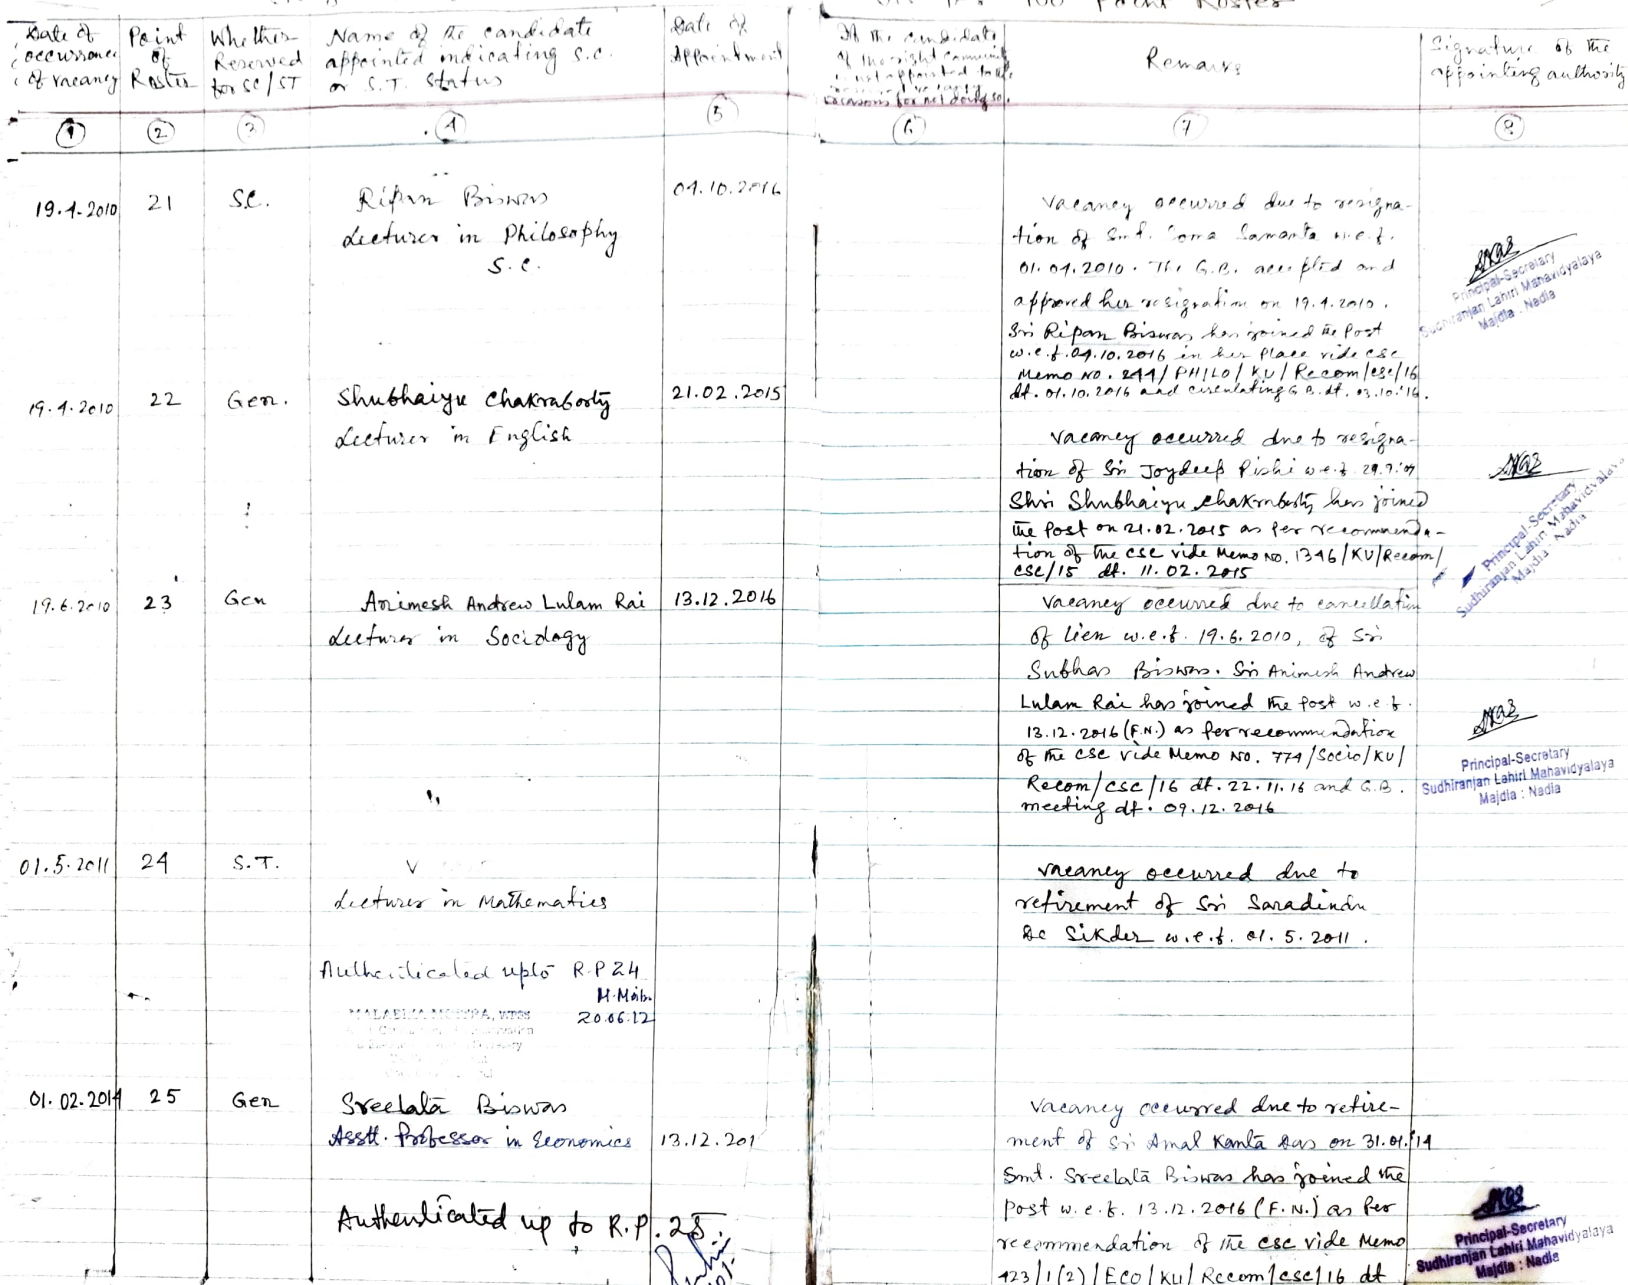 100 Point Roster
Date of
occurrence
of vacancy
Point
of
Roster
Whether
Reserved
for SC/ST
Name of the candidate
appointed indicating S.C.
or S.T. Status
Date of
Appointment
If the candidate
of the right community
is not appointed to the
reasons for not doing so.
Remarks
Signature of the
appointing authority
1
2
3
4
5
6
7
8
19.4.2010
21
S.C.
Ripan Biswas
Lecturer in Philosophy
S.C.
04.10.2016
Vacancy occurred due to resigna-
tion of Smt. Soma Samanta w.e.f.
01.04.2010. The G.B. accepted and
approved her resignation on 19.4.2010.
Sri Ripan Biswas has joined the Post
w.e.f. 04.10.2016 in her place vide CSC
Memo No. 244/PHILO/KU/Recom/CSC/16
dt. 01.10.2016 and circulating G.B. dt. 03.10.'16.
Principal-Secretary
Sudhiranjan Lahiri Mahavidyalaya
Majdia : Nadia
19.4.2010
22
Gen.
Shubhaiyu Chakraborty
Lecturer in English
21.02.2015
Vacancy occurred due to resigna-
tion of Sri Joydeep Rishi w.e.f.
Shri Shubhaiyu Chakraborty has joined
the post on 21.02.2015 as per recommenda-
tion of the CSC vide Memo No. 1346/KU/Recom/
CSC/15 dt. 11.02.2015
Principal-Secretary
Sudhiranjan Lahiri Mahavidyalaya
Majdia : Nadia
19.6.2010
23
Gen
Animesh Andrew Lulam Rai
Lecturer in Sociology
13.12.2016
Vacancy occurred due to cancellation
of lien w.e.f. 19.6.2010, of Sri
Subhas Biswas. Sri Animesh Andrew
Lulam Rai has joined the post w.e.f.
13.12.2016 (F.N.) as per recommendation
of the CSC vide Memo No. 774/Socio/KU/
Recom/CSC/16 dt. 22.11.16 and G.B.
meeting dt. 09.12.2016
Principal-Secretary
Sudhiranjan Lahiri Mahavidyalaya
Majdia : Nadia
01.5.2011
24
S.T.
V
Lecturer in Mathematics
Vacancy occurred due to
retirement of Sri Saradindu
De Sikder w.e.f. 01.5.2011.
Authenticated upto R.P 24
20.06.12
01.02.2014
25
Gen
Sreelata Biswas
Asstt. Professor in Economics
13.12.201
Vacancy occurred due to retire-
ment of Sri Amal Kanta Das on 31.01.'14
Smt. Sreelata Biswas has joined the
Post w.e.f. 13.12.2016 (F.N.) as per
recommendation of the CSC vide Memo
423/1(2)/Eco/KU/Recom/CSC/16 dt
Authenticated up to R.P. 25.
Principal-Secretary
Sudhiranjan Lahiri Mahavidyalaya
Majdia : Nadia